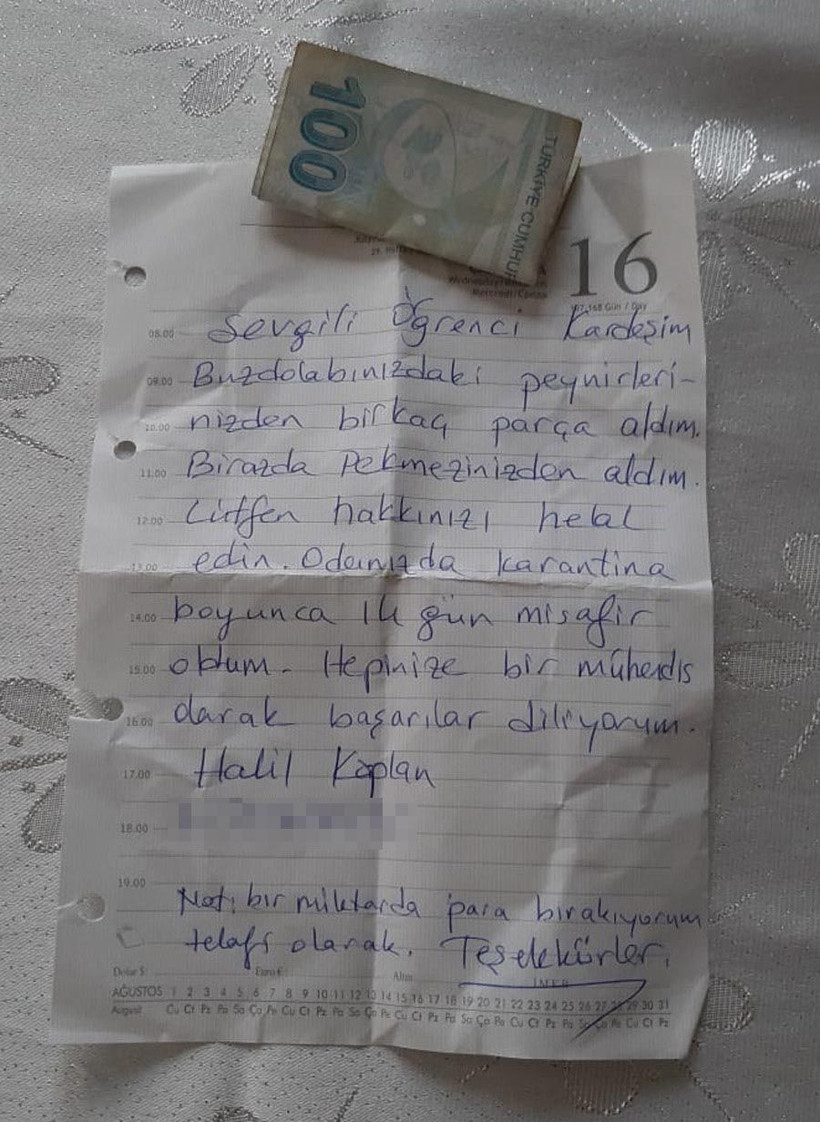 100
TÜRKİYE CUMHUR
16
Wednesday
Mercredi
168 Gün / Day
08.00 Sevgili Öğrenci Kardeşim
09.00 Buzdolabınızdaki peynirleri-
10.00 nizden birkaç parça aldım.
11.00 Birazda Pekmezinizden aldım.
12.00 Lütfen hakkınızı helal
13.00 edin. Odanızda karantina
14.00 boyunca 14 gün misafir
15.00 oldum. Hepinize bir mühendis
16.00 olarak başarılar diliyorum.
17.00 Halil Kaplan
18.00
19.00
Not: bir miktarda para bırakıyorum
telafi olarak. Teşelekürler.
Dolar $: Euro €: Altın
AĞUSTOS 1 2 3 4 5 6 7 8 9 10 11 12 13 14 15 16 17 18 19 20 21 22 23 24 25 26 27 28 29 30 31
August Cu Ct Pz Pa Sa Ça Pe Cu Ct Pz Pa Sa Ça Pe Cu Ct Pz Pa Sa Ça Pe Cu Ct Pz Pa Sa Ça Pe Cu Ct Pz